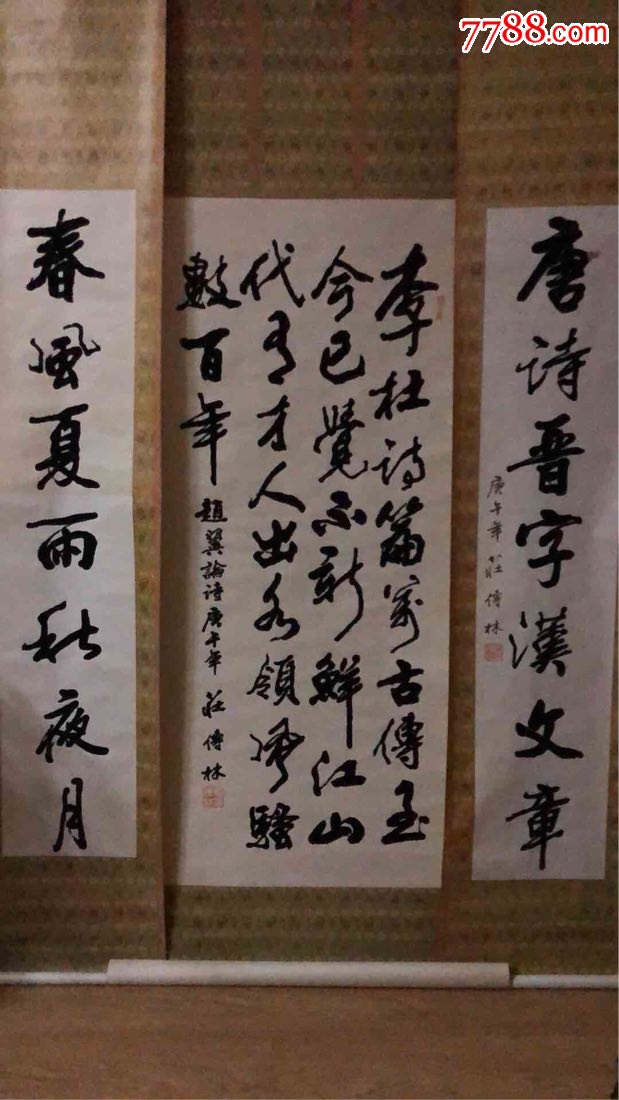 7788.com
唐詩晋字漢文章
庚午年 莊傳林
李杜詩篇萬古傳至
今已覺不新鮮江山
代有才人出各領風騷
數百年
趙翼論詩庚午年 莊傳林
春風夏雨秋夜月